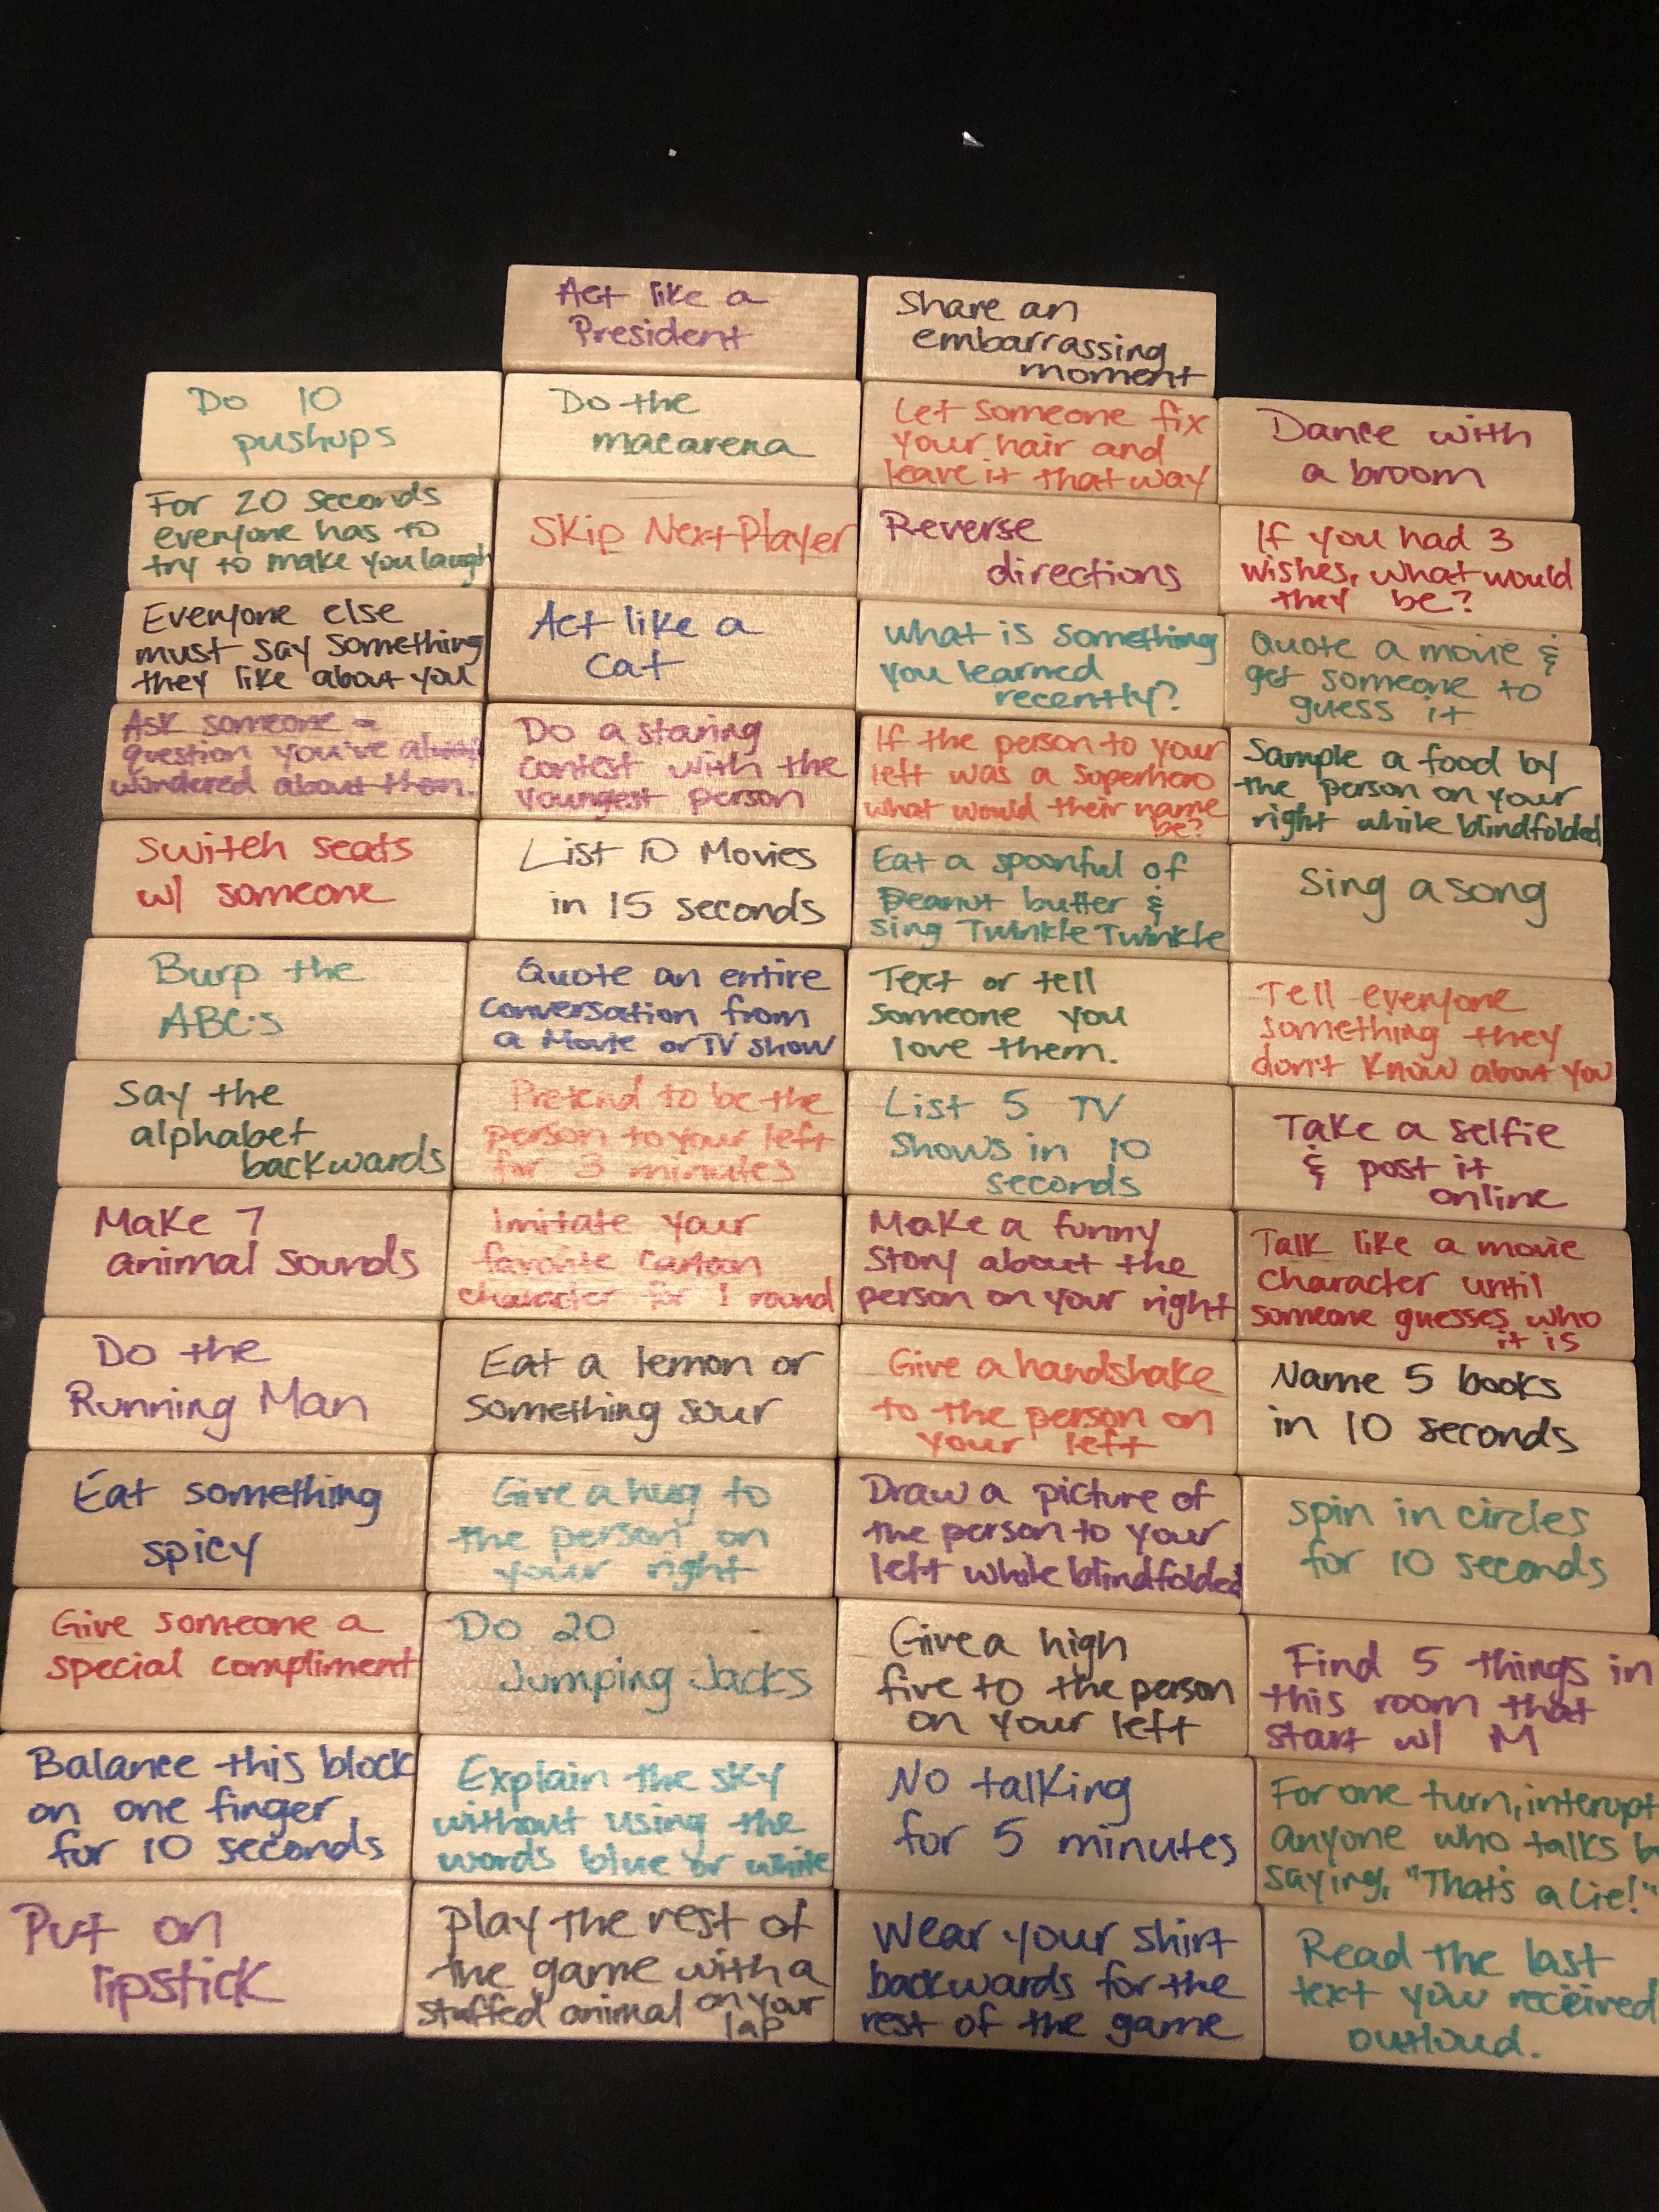 Act like a
President
Share an
embarrassing
moment
Do 10
pushups
Do the
macarena
Let someone fix
your hair and
leave it that way
Dance with
a broom
For 20 seconds
everyone has to
try to make you laugh
Skip Next Player
Reverse
directions
If you had 3
wishes, what would
they be?
Everyone else
must say something
they like about you
Act like a
cat
what is something
you learned
recently?
Quote a movie &
get someone to
guess it
Ask someone a
question you've always
wondered about them.
Do a staring
contest with the
youngest person
If the person to your
left was a superhero
what would their name
be?
Sample a food by
the person on your
right while blindfolded
Switch seats
w/ someone
List 10 Movies
in 15 seconds
Eat a spoonful of
Peanut butter &
sing Twinkle Twinkle
Sing a song
Burp the
ABC's
Quote an entire
conversation from
a Movie or TV show
Text or tell
someone you
love them.
Tell everyone
something they
don't know about you
Say the
alphabet
backwards
Pretend to be the
person to your left
for 3 minutes
List 5 TV
shows in 10
seconds
Take a selfie
& post it
online
Make 7
animal sounds
Imitate your
favorite cartoon
character for 1 round
Make a funny
story about the
person on your right
Talk like a movie
character until
someone guesses who
it is
Do the
Running Man
Eat a lemon or
something sour
Give a handshake
to the person on
your left
Name 5 books
in 10 seconds
Eat something
spicy
Give a hug to
the person on
your right
Draw a picture of
the person to your
left while blindfolded
Spin in circles
for 10 seconds
Give someone a
special compliment
Do 20
Jumping Jacks
Give a high
five to the person
on your left
Find 5 things in
this room that
start w/ M
Balance this block
on one finger
for 10 seconds
Explain the sky
without using the
words blue or white
No talking
for 5 minutes
For one turn, interupt
anyone who talks b
saying, "That's a lie!"
Put on
lipstick
Play the rest of
the game with a
stuffed animal on your
lap
Wear your shirt
backwards for the
rest of the game
Read the last
text you received
outloud.